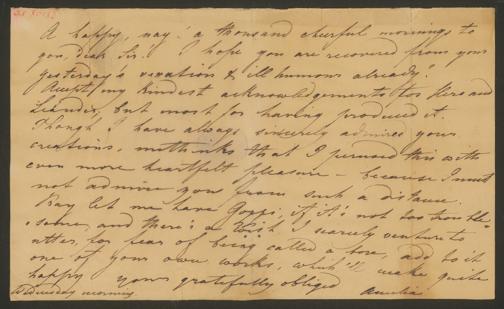 A happy, nay! a thousand cheerful mornings to
you, Dear Sir! I hope you are recovered from your
yesterday's vexation & ill humours already!
Accept my kindest acknowledgements for Hero and
Leander, but most for having produced it.
Though I have always sincerely admired your
creations, methinks that I perused this with
even more heartfelt pleasure – because I must
not admire you from such a distance.
Pray let me have if it's not too trouble-
some, and there's a I scarcely venture to
utter, for fear of being called a bore, add to it
one of your own works, which'll make quite
happy yours gratefully obliged Amelia
Wednesday morning